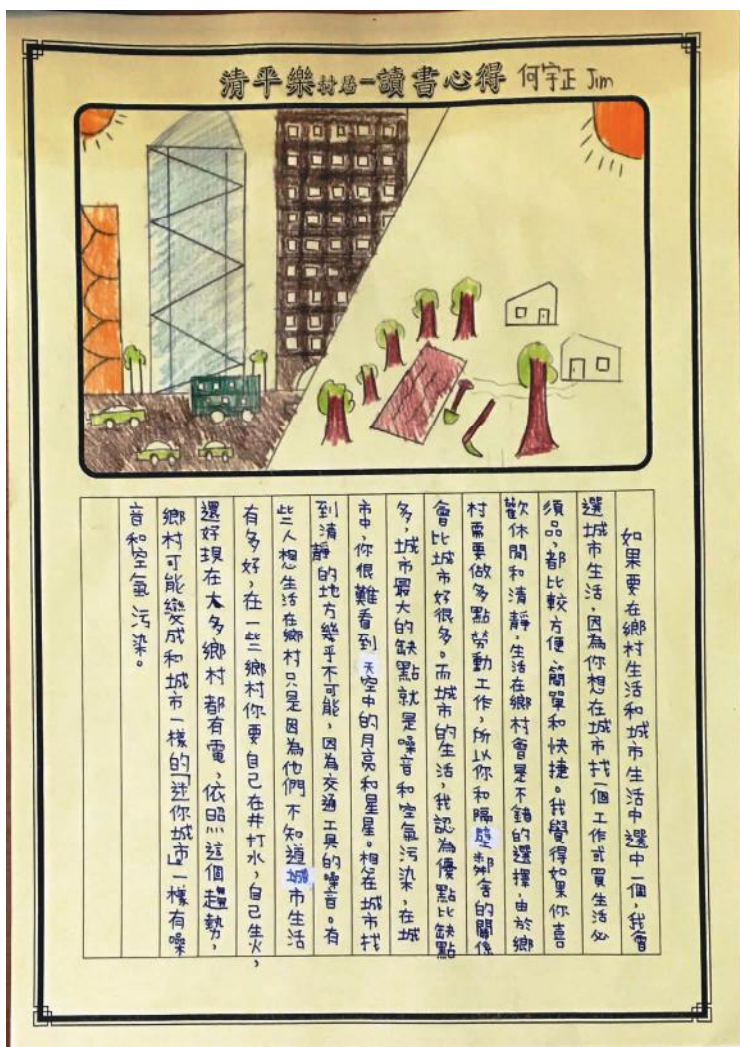 清平樂村居-讀書心得 何宇正 Jim
如果要在鄉村生活和城市生活中選中一個，我會
選城市生活，因為你想在城市找一個工作或買生活必
須品，都比較方便、簡單和快捷。我覺得如果你喜
歡休閒和清靜，生活在鄉村會是不錯的選擇，由於鄉
村需要做多點勞動工作，所以你和隔壁鄰舍的關係
會比城市好很多。而城市的生活，我認為優點比缺點
多，城市最大的缺點就是噪音和空氣污染，在城
市中，你很難看到天空中的月亮和星星。想在城市找
到清靜的地方幾乎不可能，因為交通工具的噪音。有
些人想生活在鄉村只是因為他們不知道城市生活
有多好，在一些鄉村你要自己在井打水，自己生火，
還好現在大多鄉村都有電，依照這個趨勢，
鄉村可能變成和城市一樣的「迷你城市」一樣有噪
音和空氣污染。